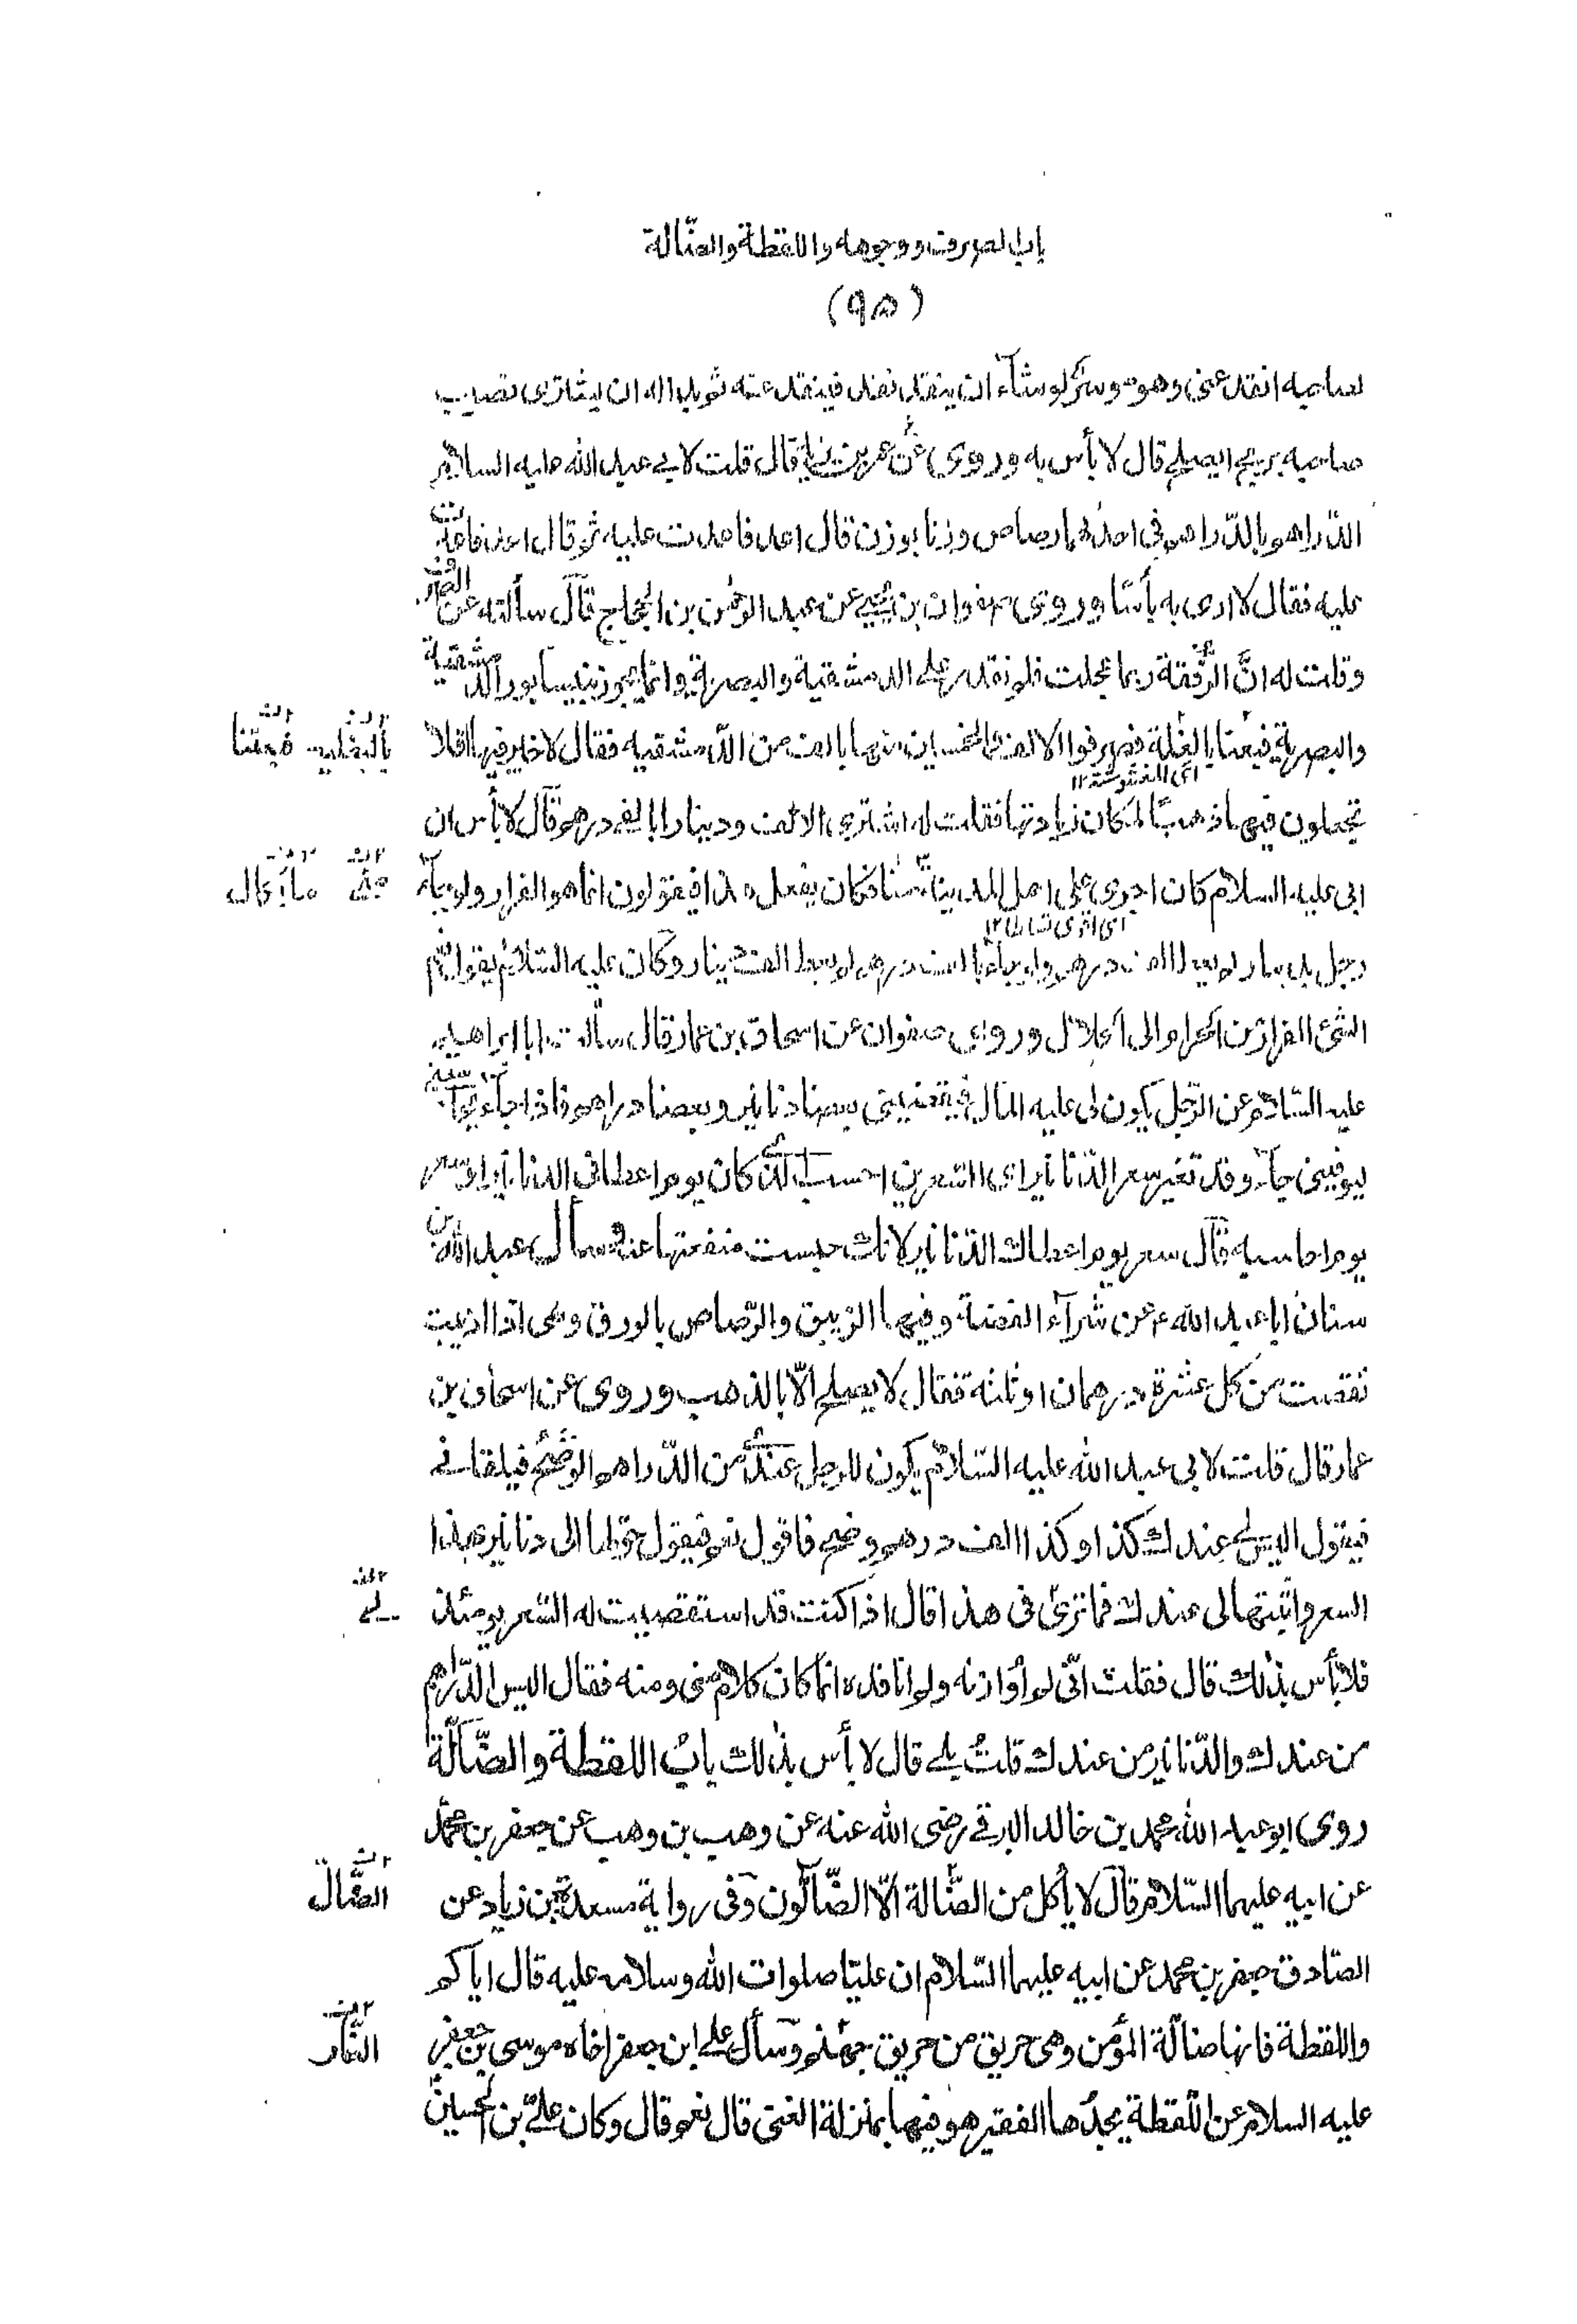 باب الصروف ووجوهه واللقطة والضّالة
(٩٥)
صاحبه انقد عنى وهو موسر لو شآء ان ينقد نقد فينقد عنه ثم بدا له ان يشترى نصيب
صاحبه بربح ايصلح قال لا بأس به وروى عن عمر بن يزيد قال قلت لابى عبد الله عليه السلام
الدّراهم بالدّراهم فى احدهما رصاص وزنا بوزن قال اعد فاعدت عليه ثم قال اعد فاعدت
عليه فقال لا ارى به بأسًا وروى صفوان بن يحيى عن عبد الرحمٰن بن الحجاج قال سألته عن الصرف
وقلت له انّ الرّفقة ربما عجلت فلم نقدر على الدمشقية والبصرية وانما يجوز بنيسابور الدمشقية
والبصرية فبعثنا بالغلّة فصرفوا الالف والخمسين منها بالف من الدّمشقيه فقال لا خير فيها افلا
اى المغشوشة ١٢
تجعلون فيها ذهبًا لمكان زيادتها فقلت له اشترى الالف ودينارا بالفى درهم قال لا بأس ان
ابى عليه السلام كان اجرى على اهل المدينة منّا فكان يفعل هذا فيقولون انما هو الفرار ولو جآء
رجل بدينار لم يعط الف درهم ولو جآء بالف درهم لم يعط الف دينار وكان عليه السّلام يقول نعم
الشئ الفرار من الحرام الى الحلال وروى صفوان عن اسحاق بن عمار قال سألت ابا ابراهيم
عليه السّلام عن الرّجل يكون لى عليه المال فيقضينى بعضا دنانير وبعضا دراهم فاذا جآء يحاسبنى
ليوفينى جآء وقد تغير سعر الدّنانير اى السّعرين احسب له الذى كان يوم اعطانى الدنانير او سعر
يوم احاسبه قال سعر يوم اعطاك الدّنانير لانك حبست منفعتها عنه وسأل عبد الله بن
سنان ابا عبد الله ع عن شرآء الفضة وفيها الزيبق والرّصاص بالورق وهى اذا اذيبت
نقصت من كل عشرة درهمان او ثلثه فقال لا يصلح الّا بالذهب وروى عن اسحاق بن
عمار قال قلت لابى عبد الله عليه السّلام يكون للرجل عندى من الدّراهم الوضح فيلقانى
فيقول اليس لى عندك كذا وكذا الف درهم وضح فاقول نعم فيقول حوّلها الى دنانير بهذا
السعر واثبتها لى عندك فما ترى فى هذا قال اذا كنت قد استقصيت له السّعر يومئذ
فلا بأس بذلك قال فقلت انّى لم اوازنه ولم اناقده انما كان كلام منى ومنه فقال اليس الدّراهم
من عندك والدّنانير من عندك قلت بلى قال لا بأس بذلك باب اللقطة والضّآلّة
روى ابو عبد الله محمد بن خالد البرقى رضى الله عنه عن وهب بن وهب عن جعفر بن محمّد
عن ابيه عليهما السّلام قال لا يأكل من الضّالة الّا الضّآلّون وفى رواية مسعدة بن زياد عن
الضّالّ
الصّادق جعفر بن محمد عن ابيه عليهما السّلام ان عليّا صلوات الله وسلامه عليه قال اياكم
واللقطة فانها ضالّة المؤمن وهى حريق من حريق جهنّم وسأل على ابن جعفر اخاه موسى بن جعفر
النّار
عليه السلام عن اللّقطة يجدها الفقير هو فيها بمنزلة الغنى قال نعم قال وكان علىّ بن الحسين